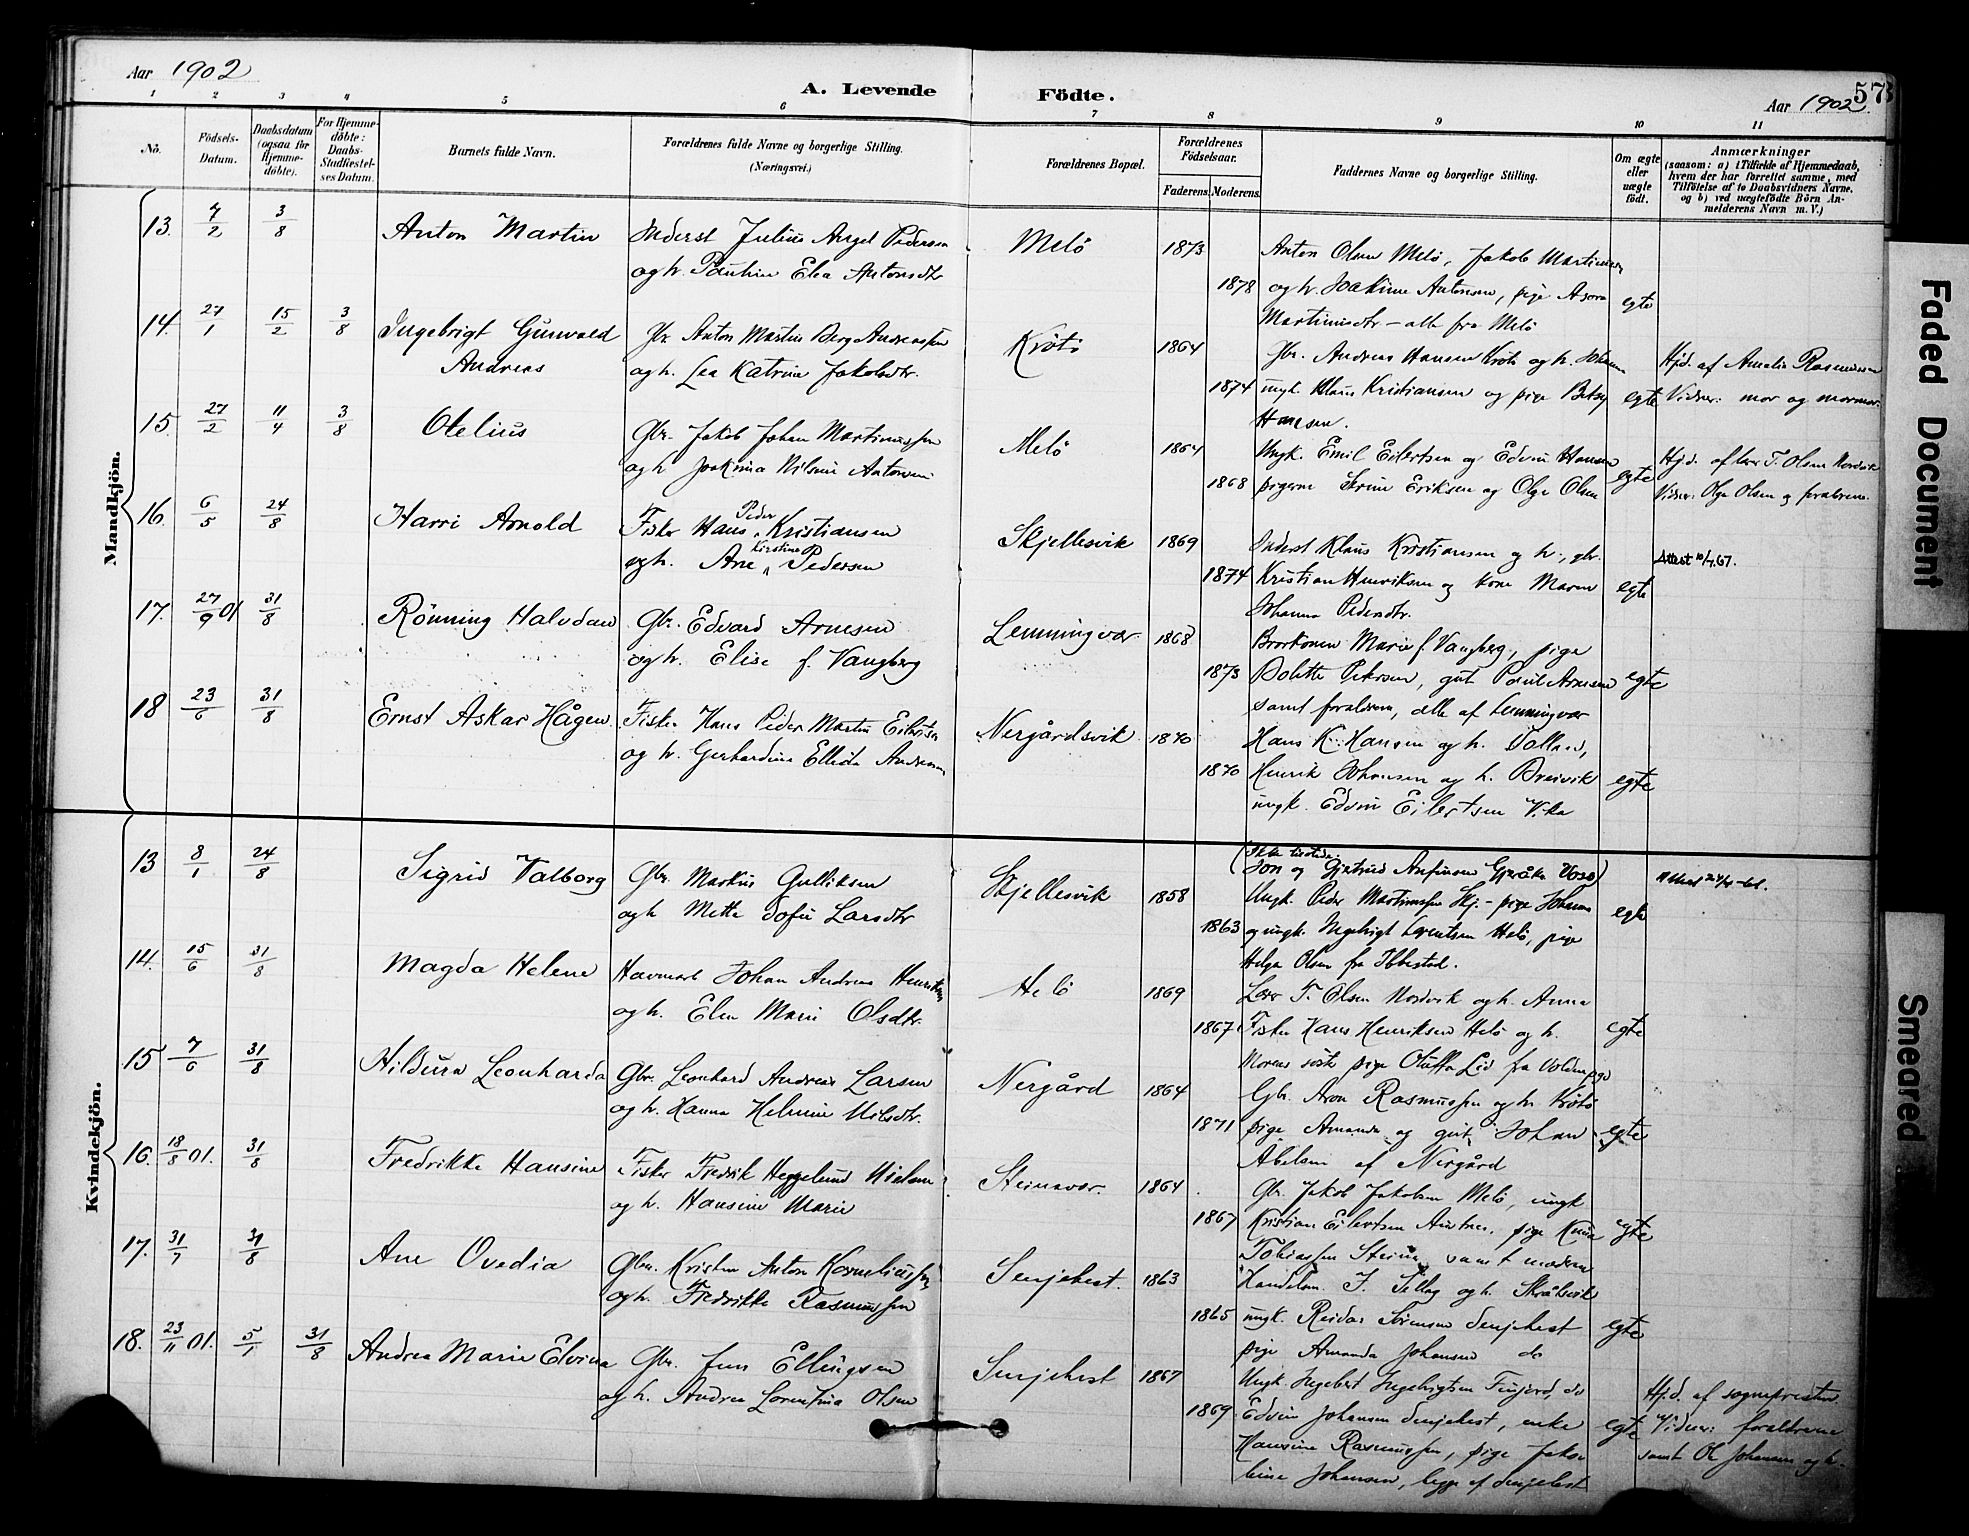 Aar 1902
A. Levende Födte.
Aar 1902
573
1 2 3 4 5 6 7 8 9 10 11
Nô.
Födsels-Datum.
Daabsdatum (ogsaa for Hjemme-döbte).
For Hjemme-döbte: Daabs-Stadfæstelses Datum.
Barnets fulde Navn.
Forældrenes fulde Navne og borgerlige Stilling. (Næringsvei.)
Forældrenes Bopæl.
Forældrenes Födselsaar.
Faderens. Moderens.
Faddernes Navne og borgerlige Stilling.
Om ægte eller uægte födt.
Anmærkninger
(saasom: a) i Tilfælde af Hjemmedaab,
hvem der har forrettet samme, med
Tilföielse af to Daabsvidners Navne.
og b) ved uægtefödte Börn An-
melderens Navn m. V.)
Mandkjön.
13. 7/2 3/8 Anton Martin
Inderst Julius Angel Pedersen
og h. Pauline Elea Antonsdtr
Melö 1873 1878
Anton Olsen Melö, Jakob Martinsen
og h. Joakime Antonsen, pige
Martinusdtr – alle fra Melö
egte
14. 27/1 15/2 3/8 Ingebrigt Gunvald
Andreas
Gbr. Anton Martin Berg Andreassen
og h. Lea Katrine Jakobsdtr.
Krötö 1864 1874
Gbr. Andreas Hansen Krötö og h. Johanna
ungk. Klaus Kristiansen og pige Betsy
Hansen.
egte
Hjd. af Amalie Rasmussen
Vidner: mor og mormor.
15. 27/2 11/4 3/8 Otelius
Gbr. Jakob Johan Martinussen
og h. Joakima Nilsine Antonsen
Melö 1864 1868
Ungk. Emil Eilertsen og Edvin Hansen
pigerne Eriksen og Olga Olsen
egte
Hjd. af lærer T. Olsen Nordvik
Vidner: Olga Olsen og forældrene.
16. 6/5 24/8 Harri Arnold
Fisker Hans Peder Kristiansen
og h. Ane Kirstine Pedersen
Skjellesvik 1869 1874
Inderst Klaus Kristiansen og h., gbr.
Kristian Henriksen og kone Maren
Johanna Pedersdtr.
egte
Attest 10/7.67.
17. 27/9 01 31/8 Rönning Halvdan
Gbr. Edvard Arnesen
og h. Elise f. Vangberg
Lemmingvær 1868 1873
Brorkonen Marie f. Vangberg, pige
Bolette Pedersen, gut Paul Arnesen
samt forældrene, alle af Lemmingvær
egte
18 23/6 31/8 Ernst Askar Hågen
Fisker Hans Peder Martin Eilertsen
og h. Gerhardine Ellida Andreassen
Nergårdsvik 1870 1870
Hans K. Hansen og h. Volland,
Henrik Johansen og h. Breivik
ungk. Edvin Eilertsen Vika
egte
Kvindekjön.
13 8/1 24/8 Sigrid Valborg
Gbr. Markus Gulliksen
og h. Mette Sofie Larsdtr
Skjellesvik 1858 1863
Jon og Gjertrud Anfinsen Gjeråker Voss)
Ungk. Peder Martinussen Skj. – pige Johanna
og ungk. Ingebrigt Lorentsen Helö, pige
Helga Olsen fra Ibbestad.
egte
14. 15/6 31/8 Magda Helene
Havnearb. Johan Andreas Henriksen
og h. Elen Marie Olsdtr.
Helö 1869 1867
Lærer T. Olsen Nordvik og h. Anna
Fisker Hans Henriksen Helö og h.
Morens söster pige Lid fra Volden
egte
15 7/6 31/8 Hildura Leonharda
Gbr. Leonhard Andreas Larsen
og h. Hanna Helmine Nilsdtr.
Nergård 1864 1871
Gbr. Aron Rasmussen og h. Krötö
pige Amanda og gut Johan
Abelsen af Nergård
egte
16. 18/8 01. 31/8 Fredrikke Hansine
Fisker Fredrik Heggelund Nielsen
og h. Hansine Marie
Steinavær. 1864 1867
Gbr. Jakob Jakobsen Melö, ungk
Kristian Eilertsen, pige
Tobiassen samt moderen
egte
17. 31/7 31/8 Ane Ovedia
Gbr. Kristen Anton Korneliussen
og h. Fredrikke Rasmussen
Senjehest. 1863 1865
Handelsm. J. og h. Skrålsvik
ungk. Reidar Sörensen Senjehest
pige Amanda Johansen do
egte
18. 23/11 01. 5/1 31/8 Andrea Marie Elvina
Gbr. Jens Ellingsen
og h. Andrea Lorentina Olsen
Senjehest 1867 1869
Ungk. Ingebert Ingebrigtsen Finjord, do
Edvin Johansen Senjehest, enke
Hansine Rasmussen, pige Jako-
bine Johansen, begge af Senjehest
egte
Hjd. af sognepresten
Vidner: forældrene
samt Ole Johansen og h.
Faded Document
Smeared